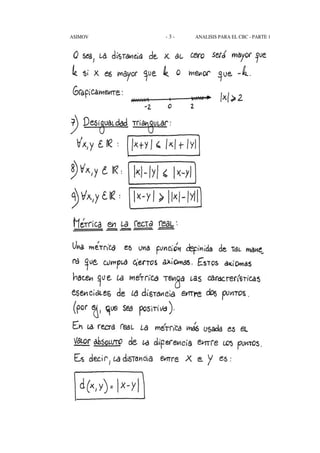 ASIMOV - 3 - ANALISIS PARA EL CBC - PARTE 1
O sea, la distancia de x al cero será mayor que
k si x es mayor que k o menor que -k.
Graficamente:
|x| ≥ 2
-2 0 2
7) Desigualdad triangular:
∀x,y ∈ ℝ : |x+y| ≤ |x| + |y|
8) ∀x,y ∈ ℝ : |x|-|y| ≤ |x-y|
9) ∀x,y ∈ ℝ : |x-y| ≥ ||x|-|y||
Métrica en la recta real:
Una métrica es una función definida de tal mane_
ra que cumpla ciertos axiomas. Estos axiomas
hacen que la métrica tenga las características
esenciales de la distancia entre dos puntos.
(por ej, que sea positiva).
En la recta real la métrica más usada es el
valor absoluto de la diferencia entre los puntos.
Es decir, la distancia entre x e y es:
d(x,y) = |x-y|